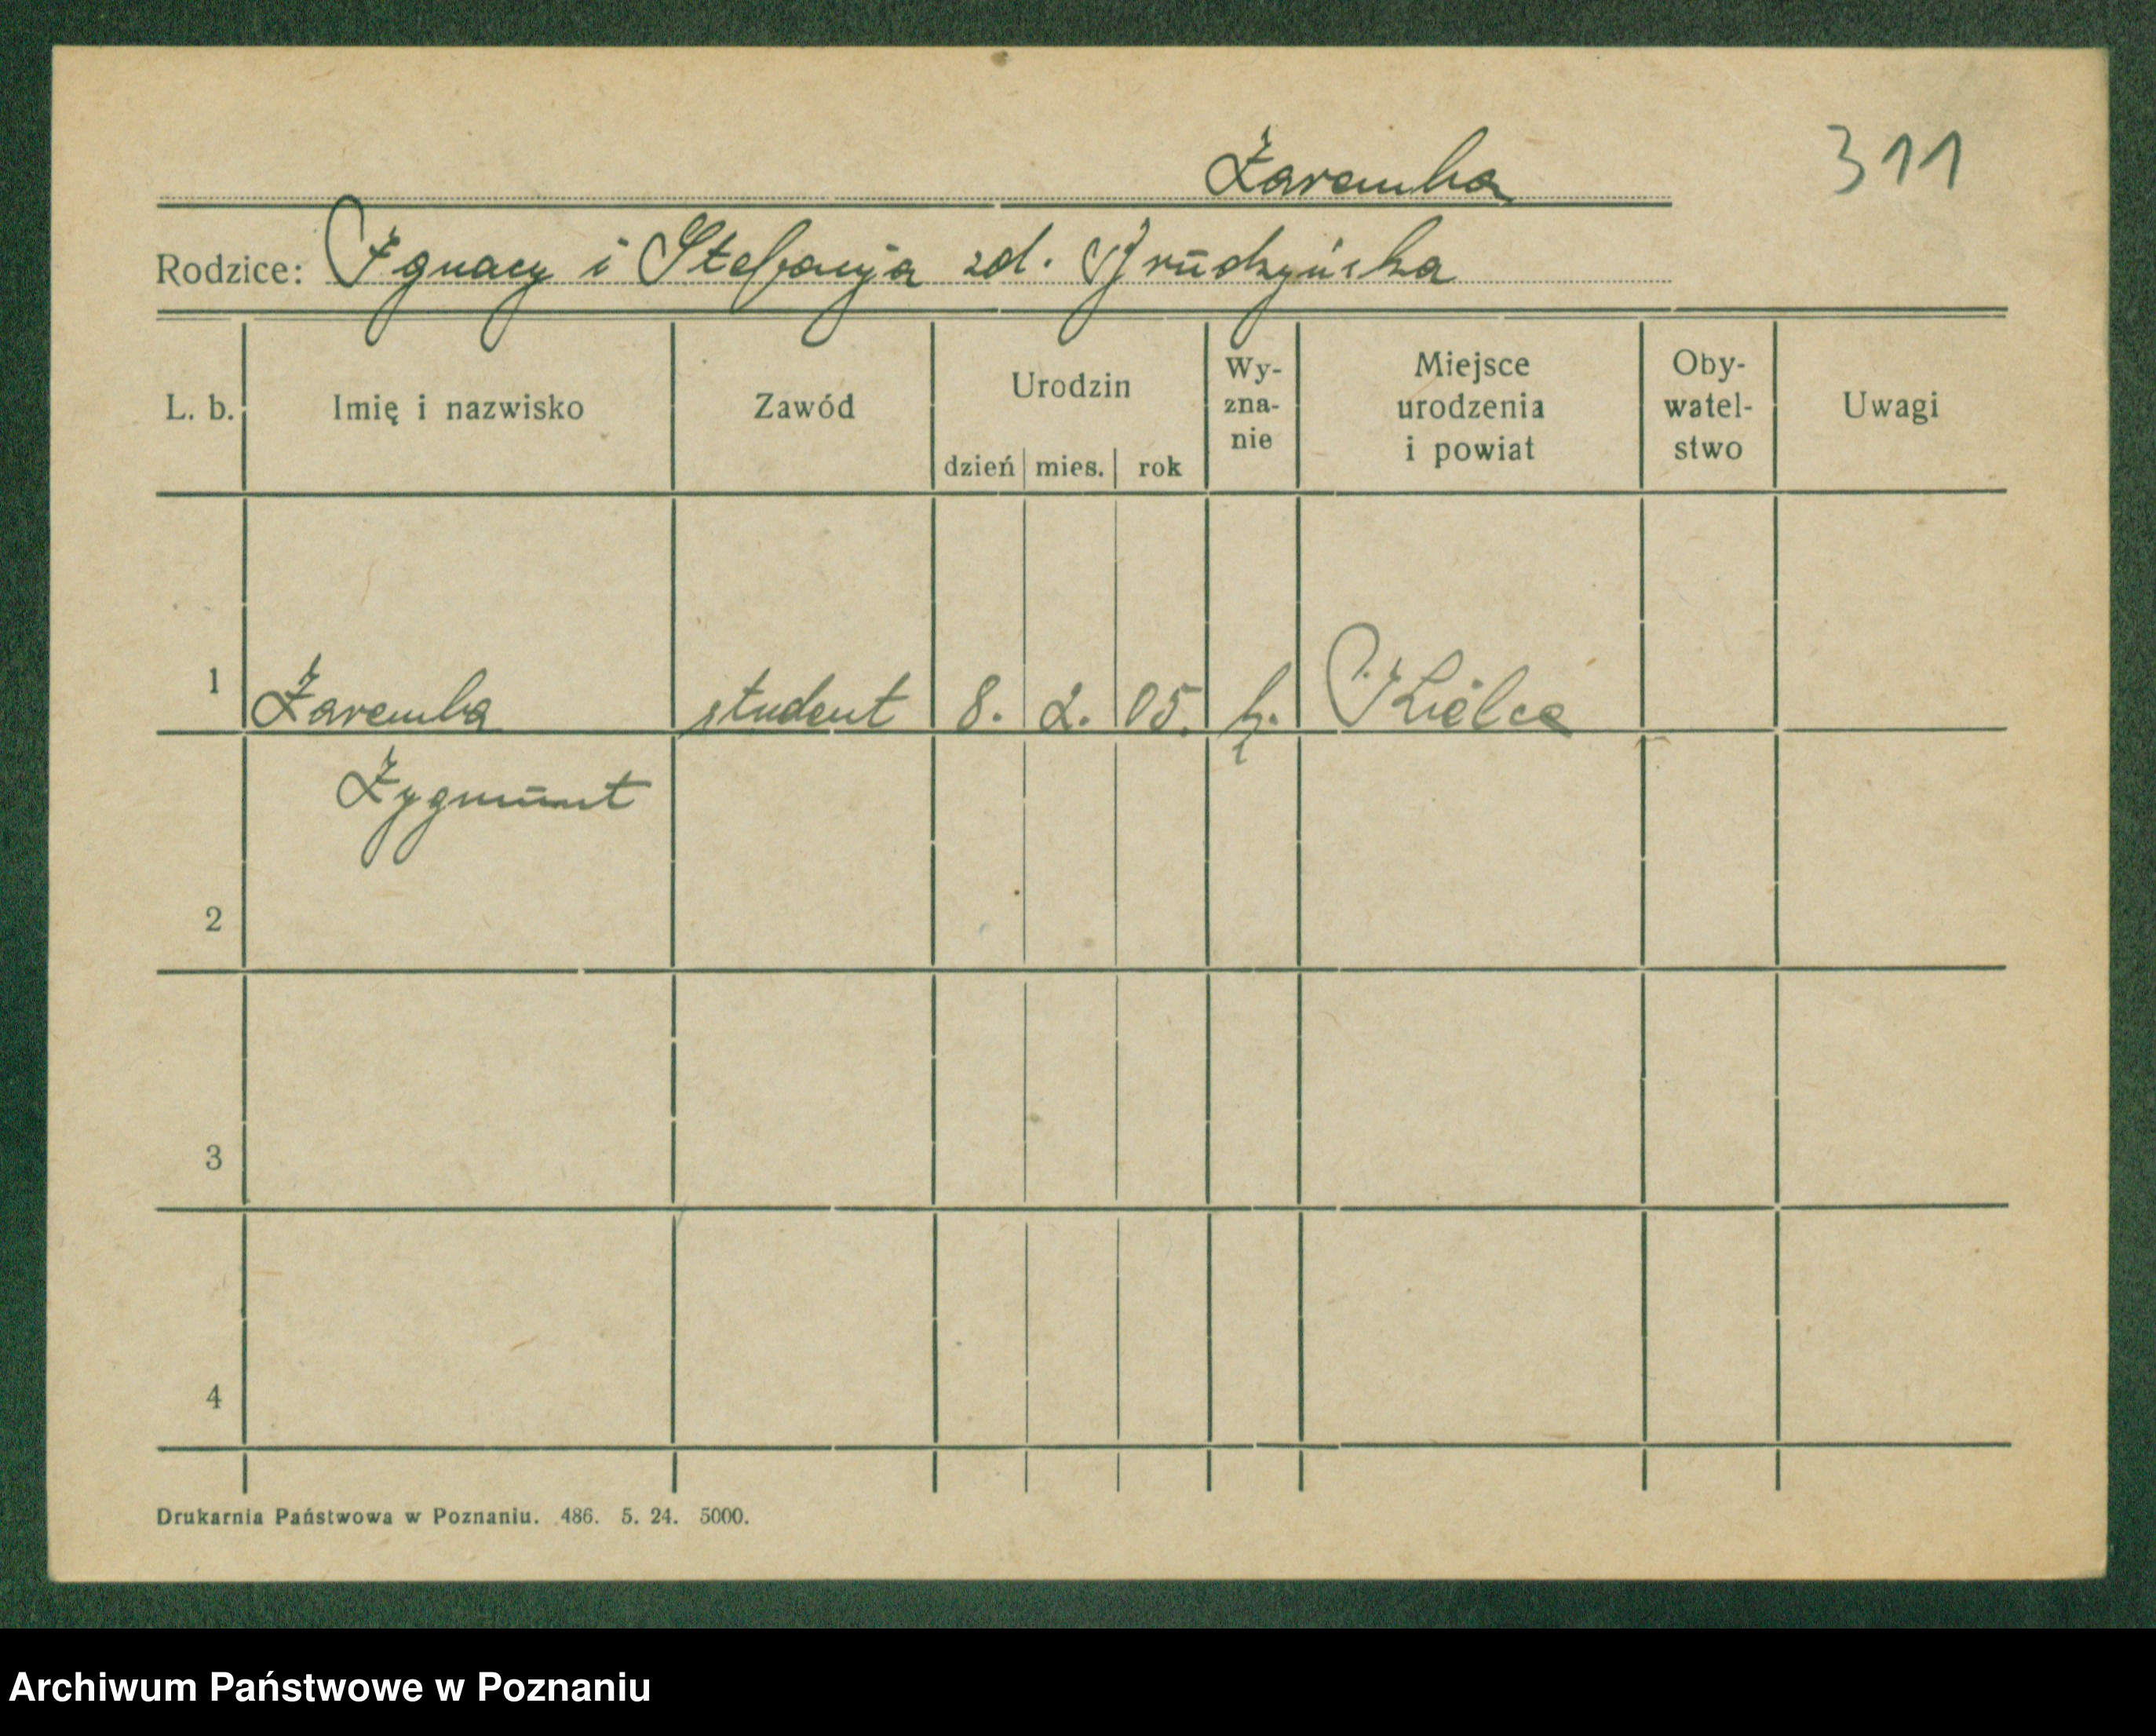 Zaremba 311
Rodzice: Ignacy i Stefanja zd. Grudzyńska
L. b. Imię i nazwisko Zawód Urodzin dzień mies. rok Wy-zna-nie Miejsce urodzenia i powiat Oby-watel-stwo Uwagi
1 Zaremba student 8. 2. 05. k. Kielce
Zygmunt
2
3
4
Drukarnia Państwowa w Poznaniu. 486. 5. 24. 5000.
Archiwum Państwowe w Poznaniu